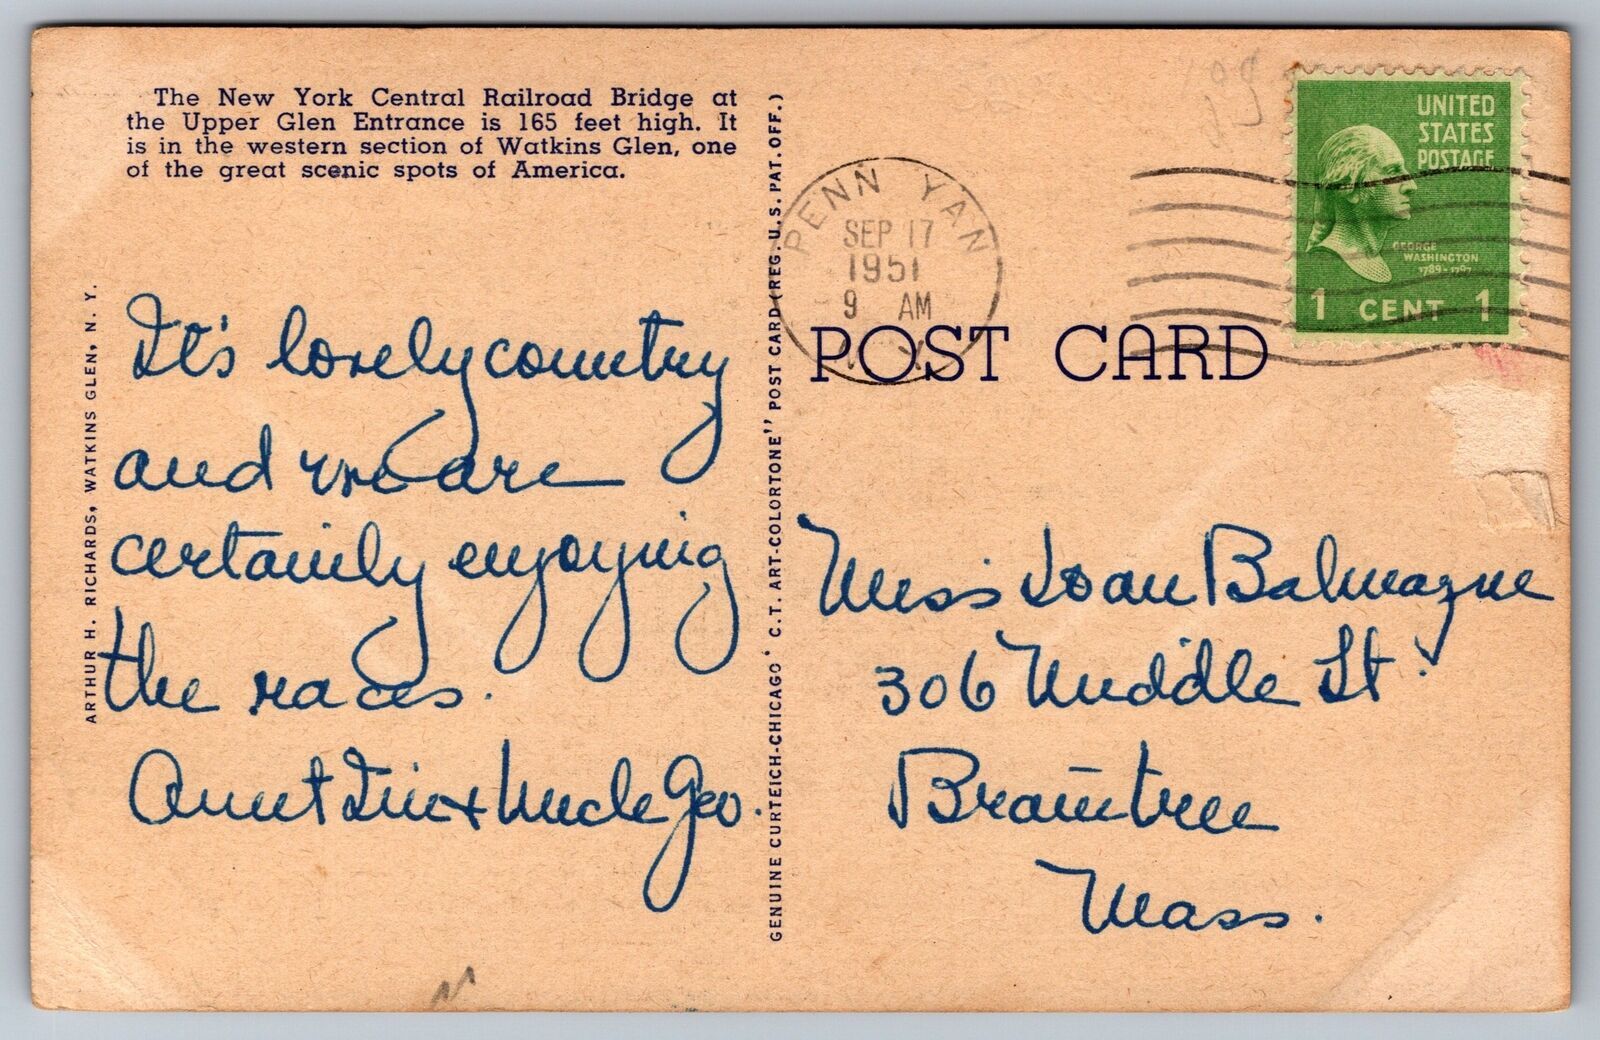 The New York Central Railroad Bridge at
the Upper Glen Entrance is 165 feet high. It
is in the western section of Watkins Glen, one
of the great scenic spots of America.
ARTHUR H. RICHARDS, WATKINS GLEN, N. Y.
It's lovely country
and we are
certainly enjoying
the races.
Aunt & Uncle Geo.
GENUINE CURTEICH-CHICAGO "C.T. ART-COLORTONE" POST CARD (REG. U.S. PAT. OFF.)
PENN YAN
SEP 17
1951
9 AM
N. Y.
UNITED
STATES
POSTAGE
GEORGE
WASHINGTON
1789-1797
1 CENT 1
POST CARD
Miss Joan Balmazne
306 Middle St.
Braintree
Mass.